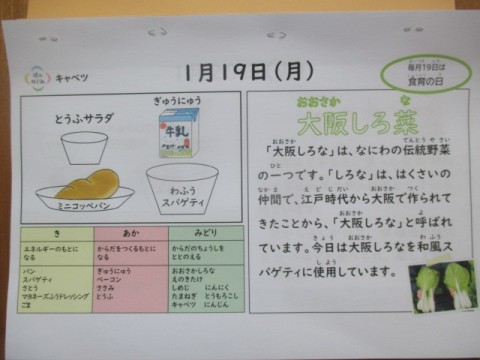 キャベツ
1月19日(月)
毎月19日は
食育の日
とうふサラダ
ぎゅうにゅう
牛乳
ミニコッペパン
わふう
スパゲティ
き
あか
みどり
エネルギーのもとに
なる
からだをつくるもとに
なる
からだのちょうしを
ととのえる
パン
スパゲティ
さとう
マヨネーズふうドレッシング
ごま
ぎゅうにゅう
ベーコン
ささみ
とうふ
おおさかしろな
えのきたけ
しめじ にんにく
たまねぎ とうもろこし
キャベツ にんじん
おおさか な
大阪しろ菜
おおさか でんとう や さい
「大阪しろな」は、なにわの伝統野菜
ひと
の一つです。「しろな」は、はくさいの
なか ま え ど じ だい おおさか つく
仲間で、江戸時代から大阪で作られて
おおさか よ
きたことから、「大阪しろな」と呼ばれ
きょう おおさか わ ふう
ています。今日は大阪しろなを和風ス
し よう
パゲティに使用しています。